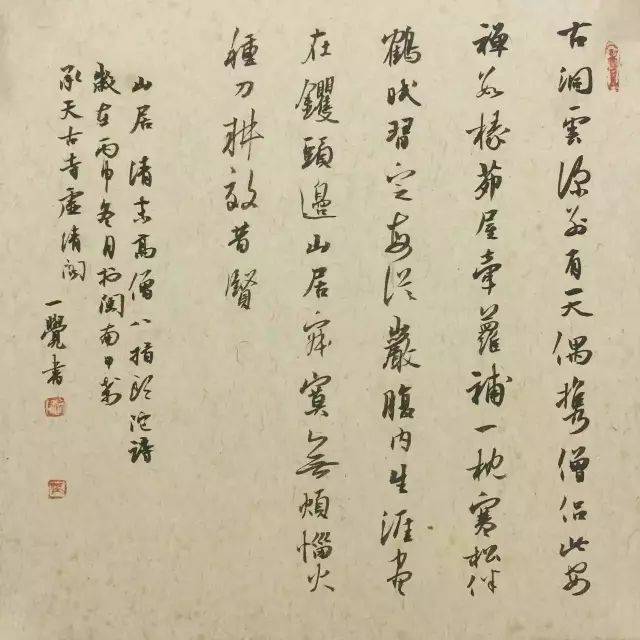 古洞雲深別有天偶攜僧侶此安
禪數椽茆屋牽蘿補一枕寒松伴
鶴眠習定每從巖腹內生涯盡
在钁頭邊山居寂寞無煩惱火
種刀耕效昔賢
山居清末高僧八指頭陀詩
歲在丙申冬月於閩南甲刹
承天古寺虛清閣一覺書